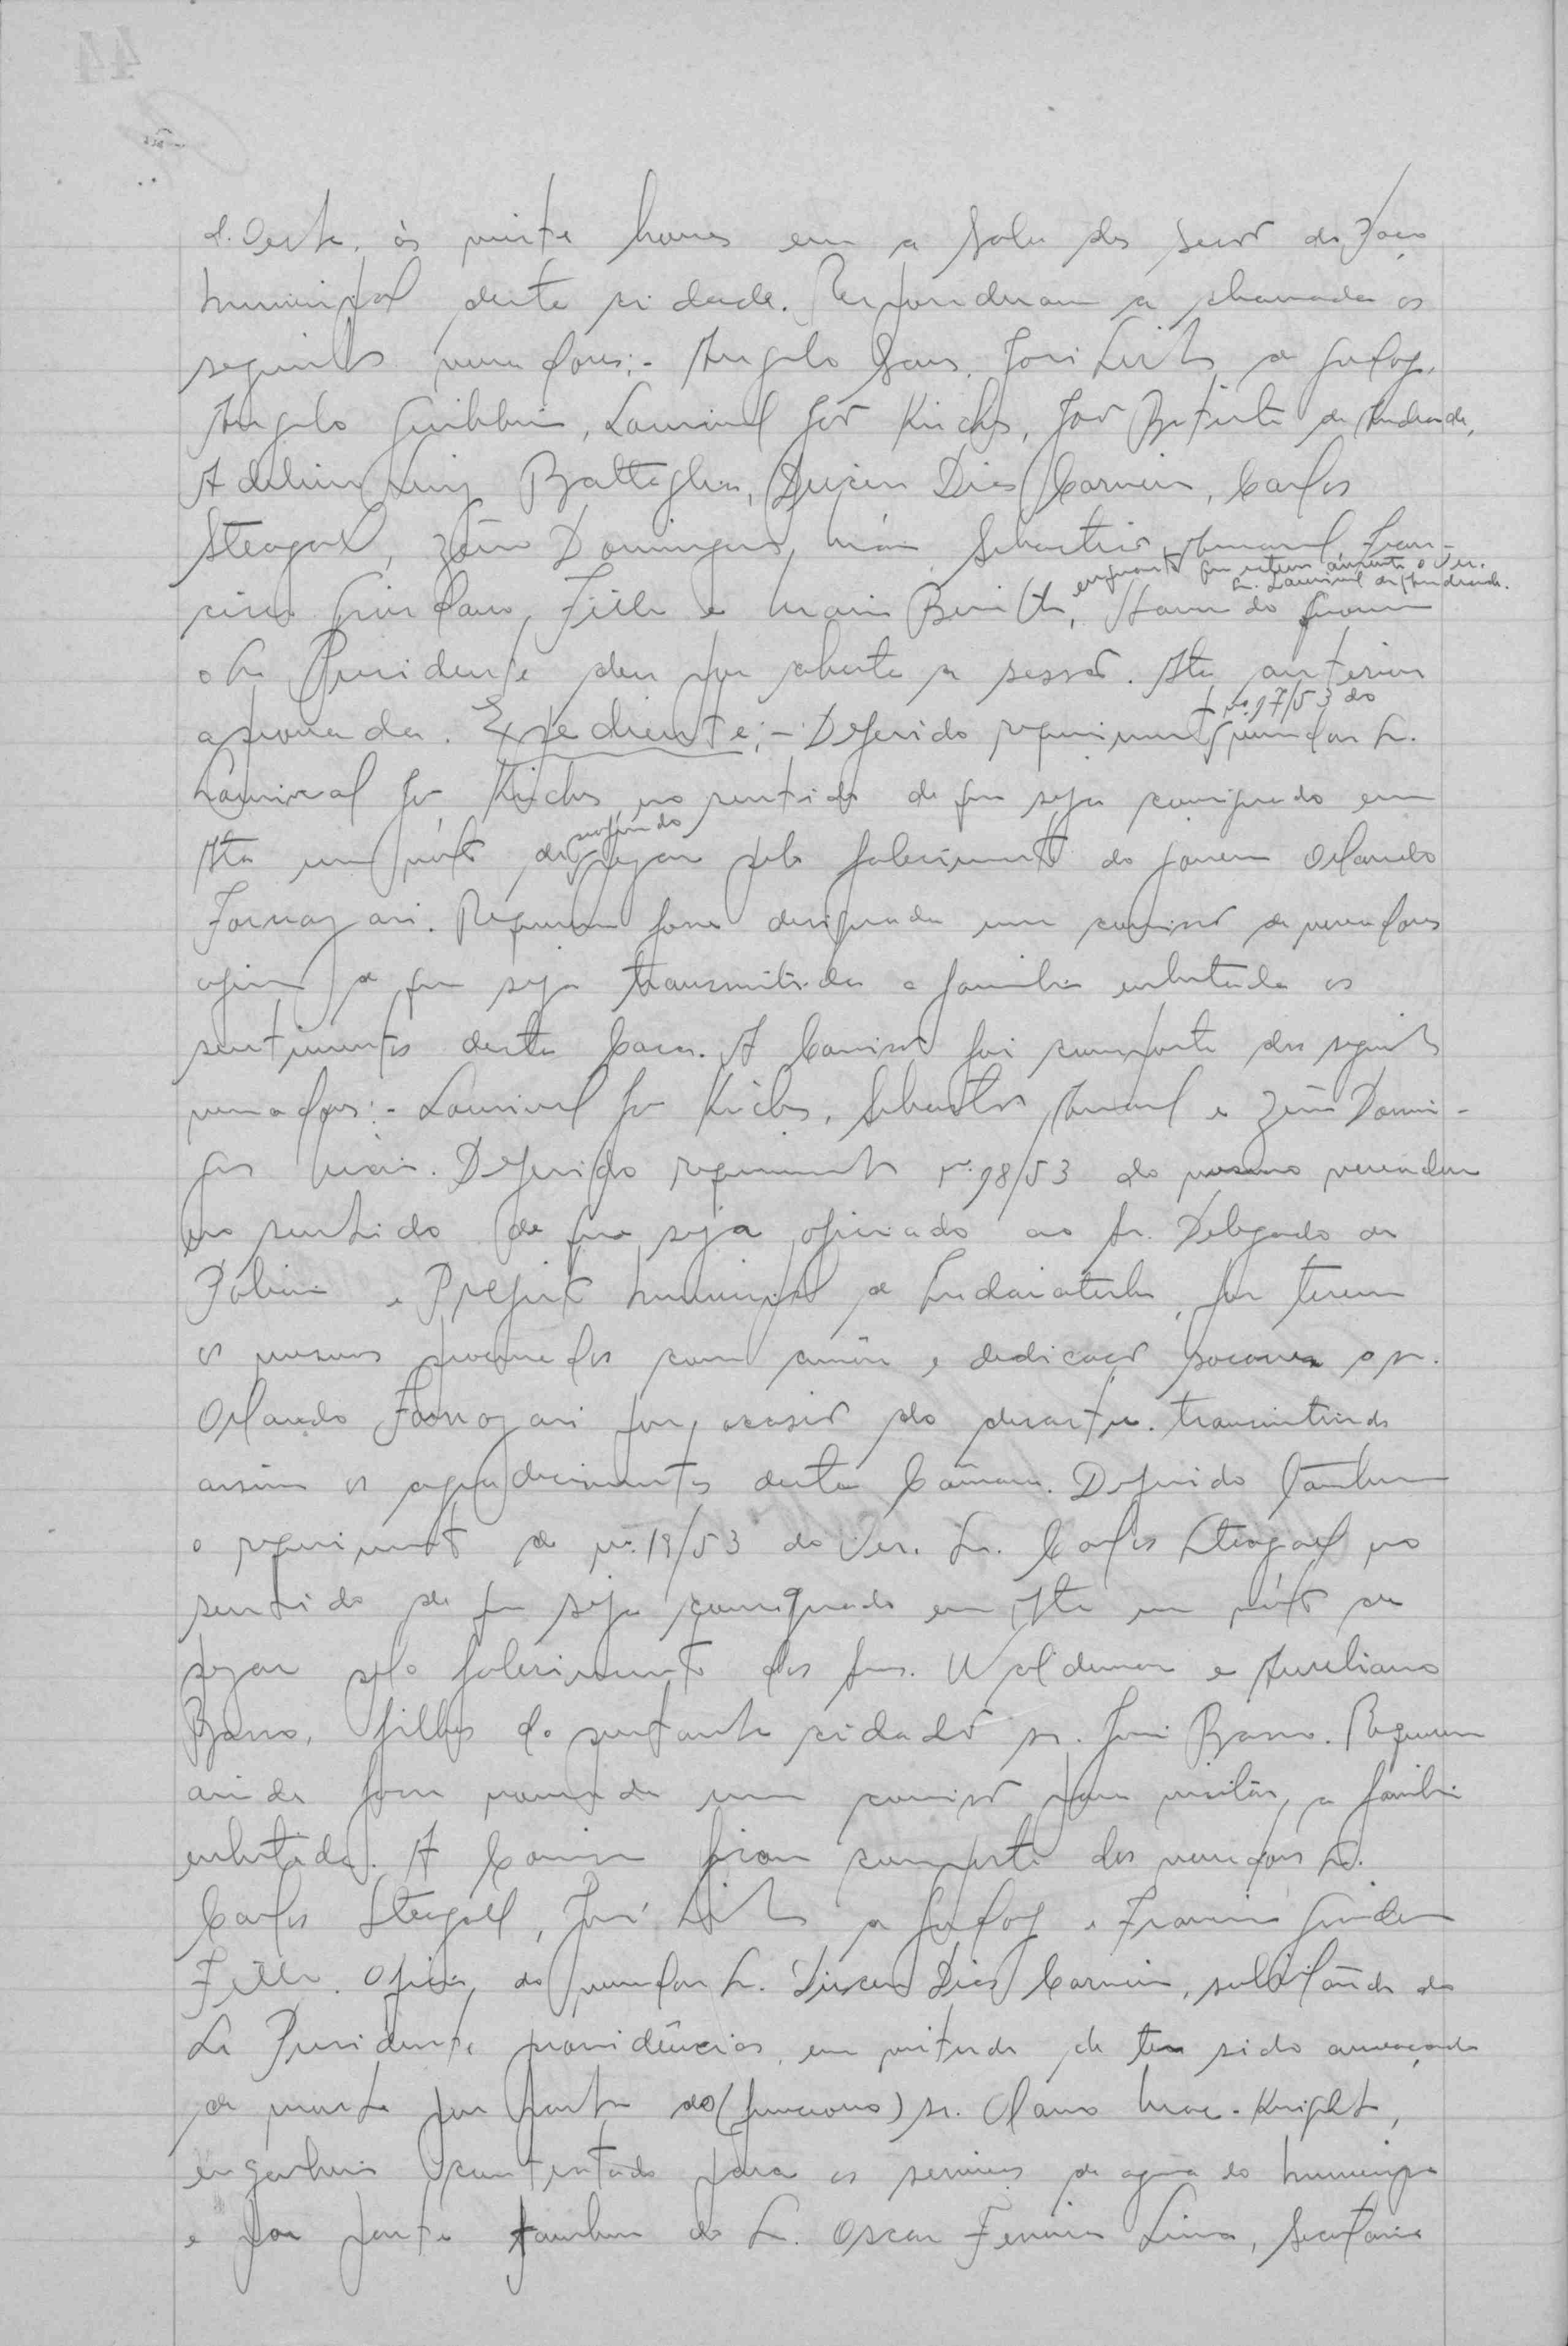 d'Oeste, às vinte horas em a Sala das Sessões do Paço
Municipal desta cidade. Responderam a chamada os
seguintes vereadores:- Angelo Sans, José Leite de Godoy,
Angelo Giubbina, Lourival José Kirches, José Batista de Andrade,
Adelino Luiz Battaglia, Dirceu Dias Carneiro, Carlos
Steagall, Zéno Domingues Maia, Sebastião Amaral, Fran-
cisco Guindaro Filho e Mario Benitto, enquanto que esteve ausente o Ver.
Sr. Lourival de Andrade. Havendo quorum
o Sr. Presidente deu por aberta a sessão. Ata anterior
aprovada. Expediente:- Deferido requerimento nº 17/53 do vereador Sr.
Lourival José Kirches no sentido de que seja consignado em
Ata um voto de profundo pezar pelo falecimento do jovem Orlando
Fornazari. Requereu fosse designada uma comissão de vereadores
afim de que seja transmitida a familia enlutada os
sentimentos desta Casa. A Comissão foi composta dos seguintes
vereadores:- Lourival José Kirches, Sebastião Amaral e Zéno Domin-
gues Maia. Deferido requerimento nº 18/53 do mesmo vereador
no sentido de que seja oficiado ao Sr. Delegado de
Policia e Prefeito Municipal de Indaiatuba, por terem
os mesmos procurados com carinho e dedicação socorrer o sr.
Orlando Fornazari por ocasião do desastre. transmitindo
assim os agradecimentos desta Câmara. Deferido tambem
o requerimento de nº 19/53 do Ver. Sr. Carlos Steagall no
sentido de que seja consignado em Ata um voto de
pezar pelo falecimento dos srs. Waldemar e Aureliano
Basso, filhos do prestante cidadão sr. José Basso. Requereu
ainda fosse nomeada uma comissão para visitar a familia
enlutada. A Comissão ficou composta dos vereadores Srs.
Carlos Steagall, José Leite de Godoy e Francisco Guindaro
Filho. Oficio do vereador Sr. Dirceu Dias Carneiro, solicitando do
Sr. Presidente providências, em virtude de ter sido ameaçado
de morte por parte do (funciono) sr. Olavo Mac-Knight,
engenheiro contratado para os serviços de agua do Municipio
e por parte tambem do Sr. Oscar Ferreira Lima, Secretario